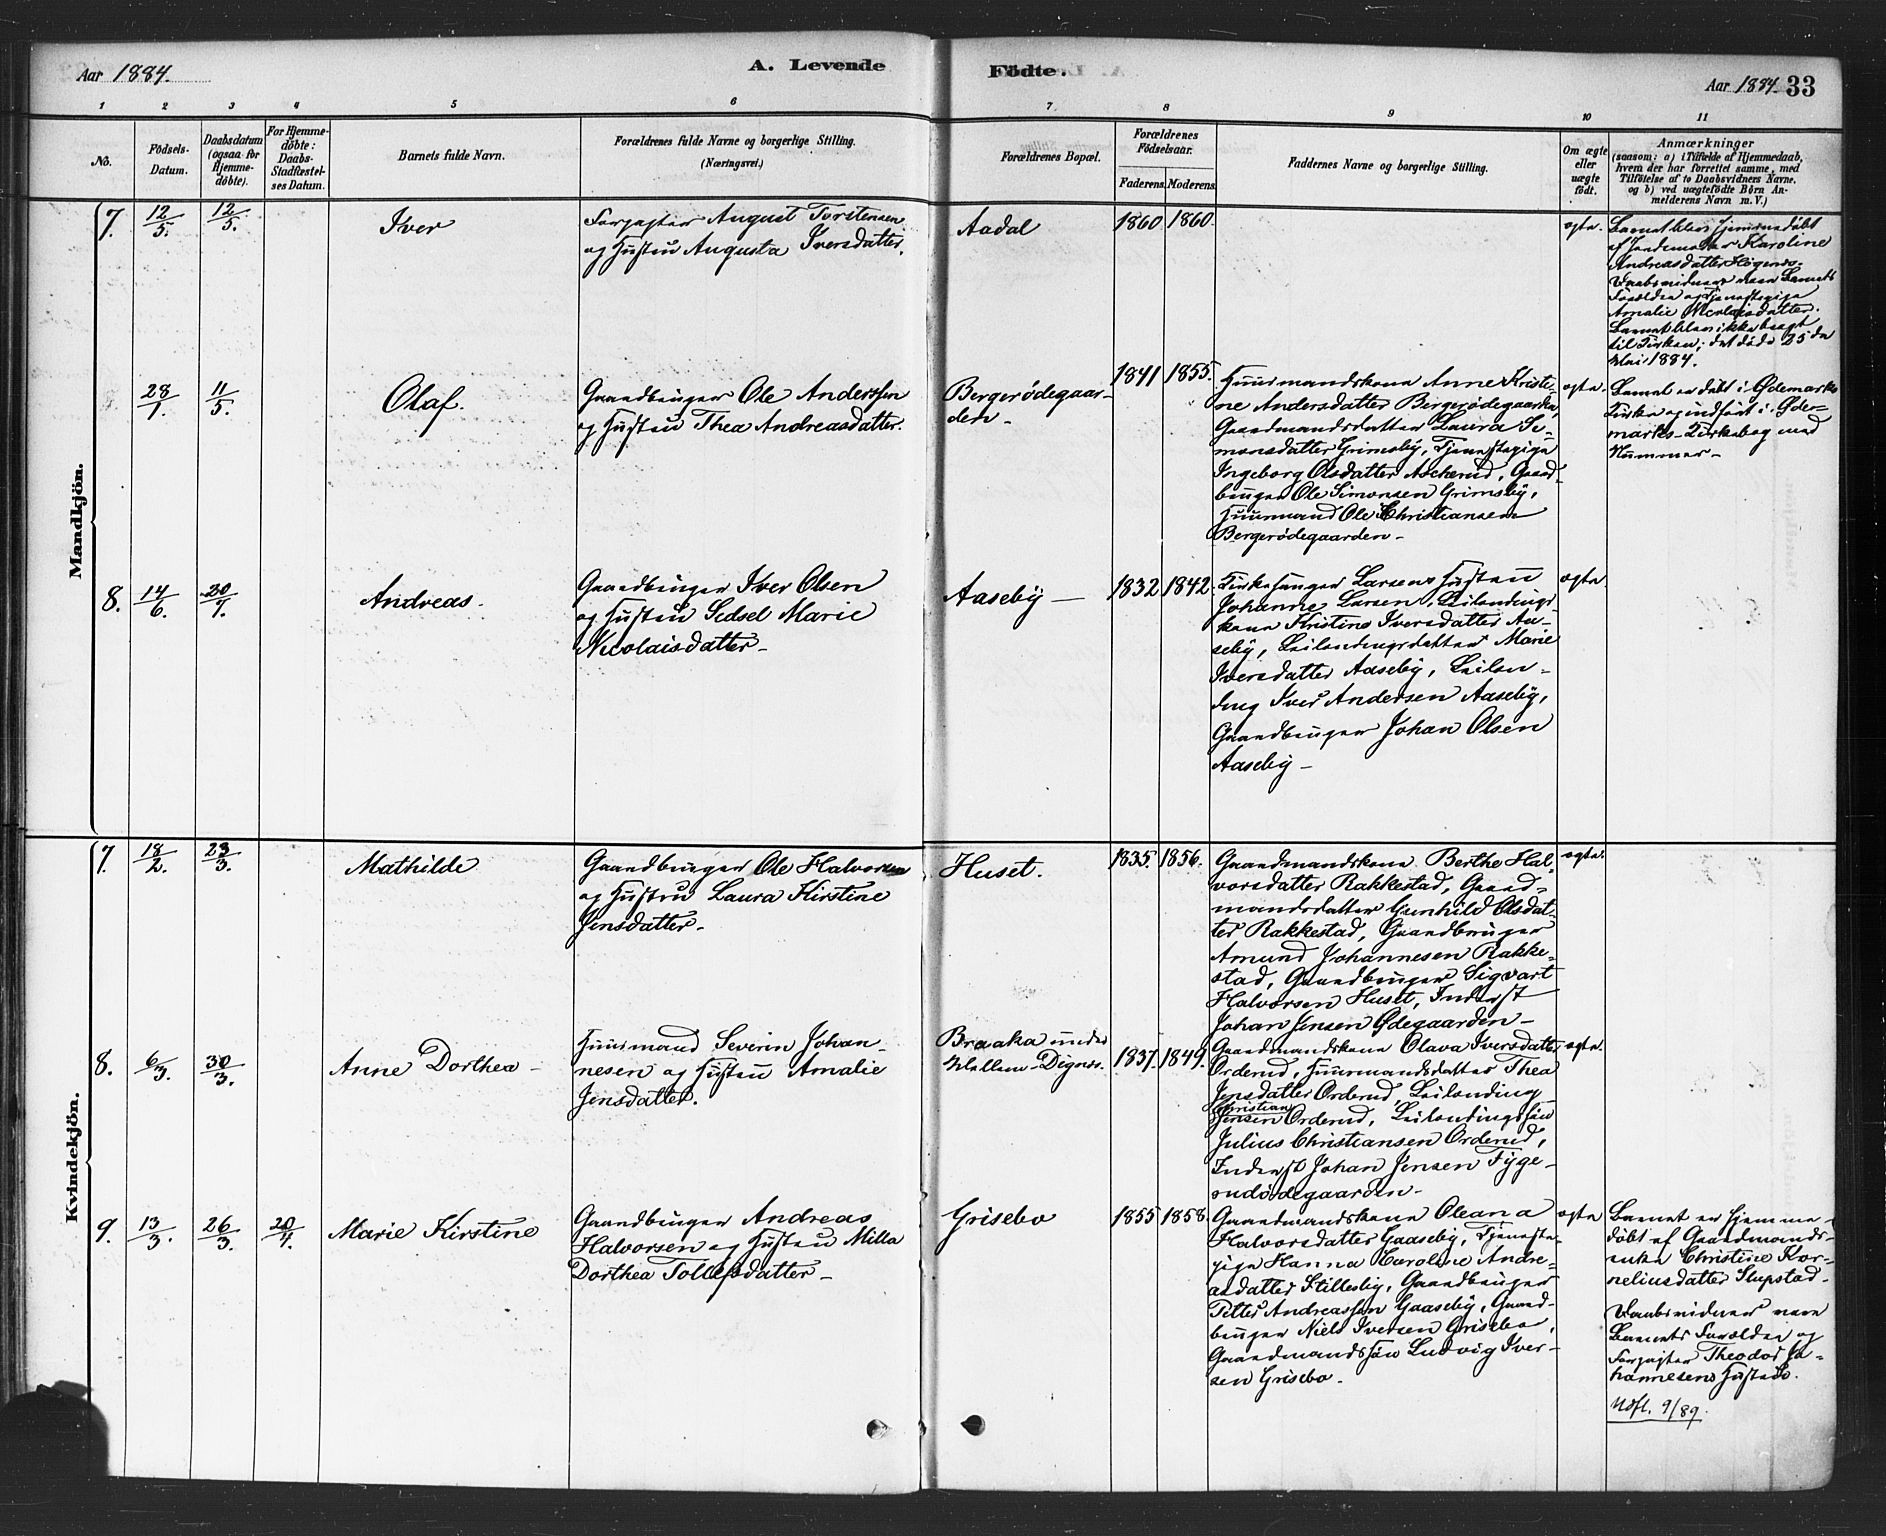 Aar 1884.
A. Levende
Födte.
Aar 1884. 33
1 2 3 4 5 6 7 8 9 10 11
No.
Födsels-
Datum.
Daabsdatum
(ogsaa for
Hjemme-
döbte).
For Hjemme-
döbte:
Daabs-
Stadfæstel-
ses Datum.
Barnets fulde Navn.
Forældrenes fulde Navne og borgerlige Stilling.
(Næringsvei.)
Forældrenes Bopæl.
Forældrenes
Födselsaar.
Faderens.
Moderens.
Faddernes Navne og borgerlige Stilling.
Om ægte
eller
uægte
födt.
Anmærkninger
(saasom: a) i Tilfælde af Hjemmedaab,
hvem der har forrettet samme, med
Tilföielse af to Daabsvidners Navne,
og b) ved uægtefödte Börn An-
melderens Navn m. V.)
Mandkjön.
7. 12/5. 12/5.
Iver
August Torstensen
og Hustru Augusta Iversdatter.
Aadal
1860 1860.
ægte.
Barnet blev hjemmedøbt
af Jordemoder Karoline
Andreasdatter
Daabsvidner vare Barnets
Forældre og Tjenestepige
Amalie Nicolaisdatter.
Barnet blev ikke bragt
til Kirken; det døde 25de
Mai 1884.
28/1. 11/5.
Olaf.
Gaardbruger Ole Anderssen
og Hustru Thea Andreasdatter.
Bergerødegaar-
den -
1841 1855.
Huusmandskone Anne Kristi-
ne Andersdatter Bergerødegaarden,
Gaardmandsdatter Laura Si-
monsdatter Grimsby, Tjenestepige
Ingeborg Olsdatter Ascherud, Gaard-
bruger Ole Simonsen Grimsby,
Huusmand Ole Christiansen
Bergerødegaarden -
ægte.
Barnet er døbt i Ødemarks
Kirke og indført i Øde-
marks-Kirkebog med
Nummer -
8. 14/6. 20/7.
Andreas.
Gaardbruger Iver Olsen
og Hustru Sidsel Marie
Nicolaisdatter -
Aaseby -
1832 1842.
Kirkesanger Larsens Hustru
Johanne Larsen, Leilændings-
kone Kristine Iversdatter Aa-
seby, Leilændingsdatter Marie
Iversdatter Aaseby, Leilæn-
ding Iver Andersen Aaseby,
Gaardbruger Johan Olsen
Aaseby -
ægte.
Kvindekjön.
7. 18/2. 23/3.
Mathilde
Gaardbruger Ole Halvorsen
og Hustru Laura Kirstine
Jensdatter -
Huset.
1835. 1856.
Gaardmandskone Berthe Hal-
vorsdatter Rakkestad, Gaard-
mandsdatter Gunhild Olsdat-
ter Rakkestad, Gaardbruger
Amund Johannesen Rakke-
stad, Gaardbruger Sigvart
Halvorsen Huset, Inderst
Johan Jensen Ødegaarden -
ægte.
8. 6/3. 30/3.
Anne Dorthea -
Huusmand Severin Johan-
nesen og Hustru Amalie
Jensdatter.
Braaka under
1837. 1849.
Gaardmandskone Olava Iversdatter
Orderud, Huusmandsdatter Thea
Jensdatter Orderud, Leilænding
Christian
Jensen Orderud, Leilændingssøn
Julius Christiansen Orderud,
Inderst Johan Jensen
ægte.
9. 13/3. 26/3. 20/4.
Marie Kirstine
Gaardbruger Andreas
Halvorsen og Hustru Milla
Dorthea Tollefsdatter -
Grisebo
1855 1858.
Gaardmandskone Oleana
Halvorsdatter Gaaseby, Tjeneste-
pige Hanna Caroline Andre-
asdatter Stillesby, Gaardbruger
Petter Andreassen Gaaseby, Gaard-
bruger Niels Iversen Grisebo,
Gaardmandssøn Ludvig Iver-
sen Grisebo.
ægte
Barnet er hjemme-
døbt af Gaardmands-
enke Christine Kor-
neliusdatter Slupstad.
Daabsvidner vare
Barnets Forældre og
Theodor Jo-
hannesens Hustru.
Udfl. 9/89.